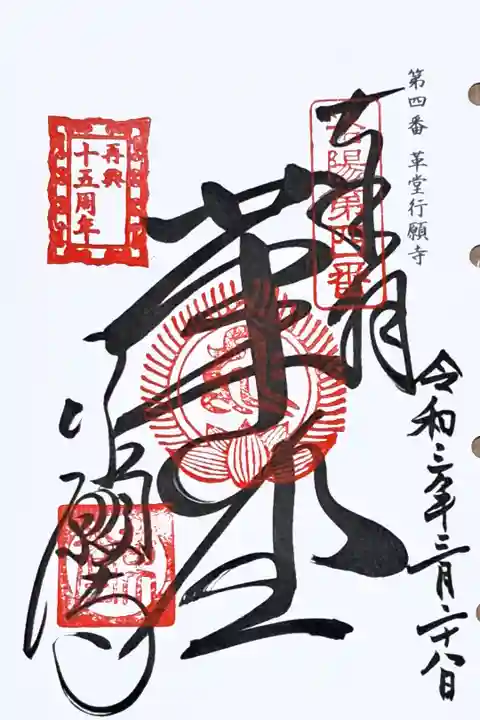 第四番 革堂行願寺
令和三年三月二十八日
奉拝
洛陽第四番
革堂
行願寺
再興
十五周年